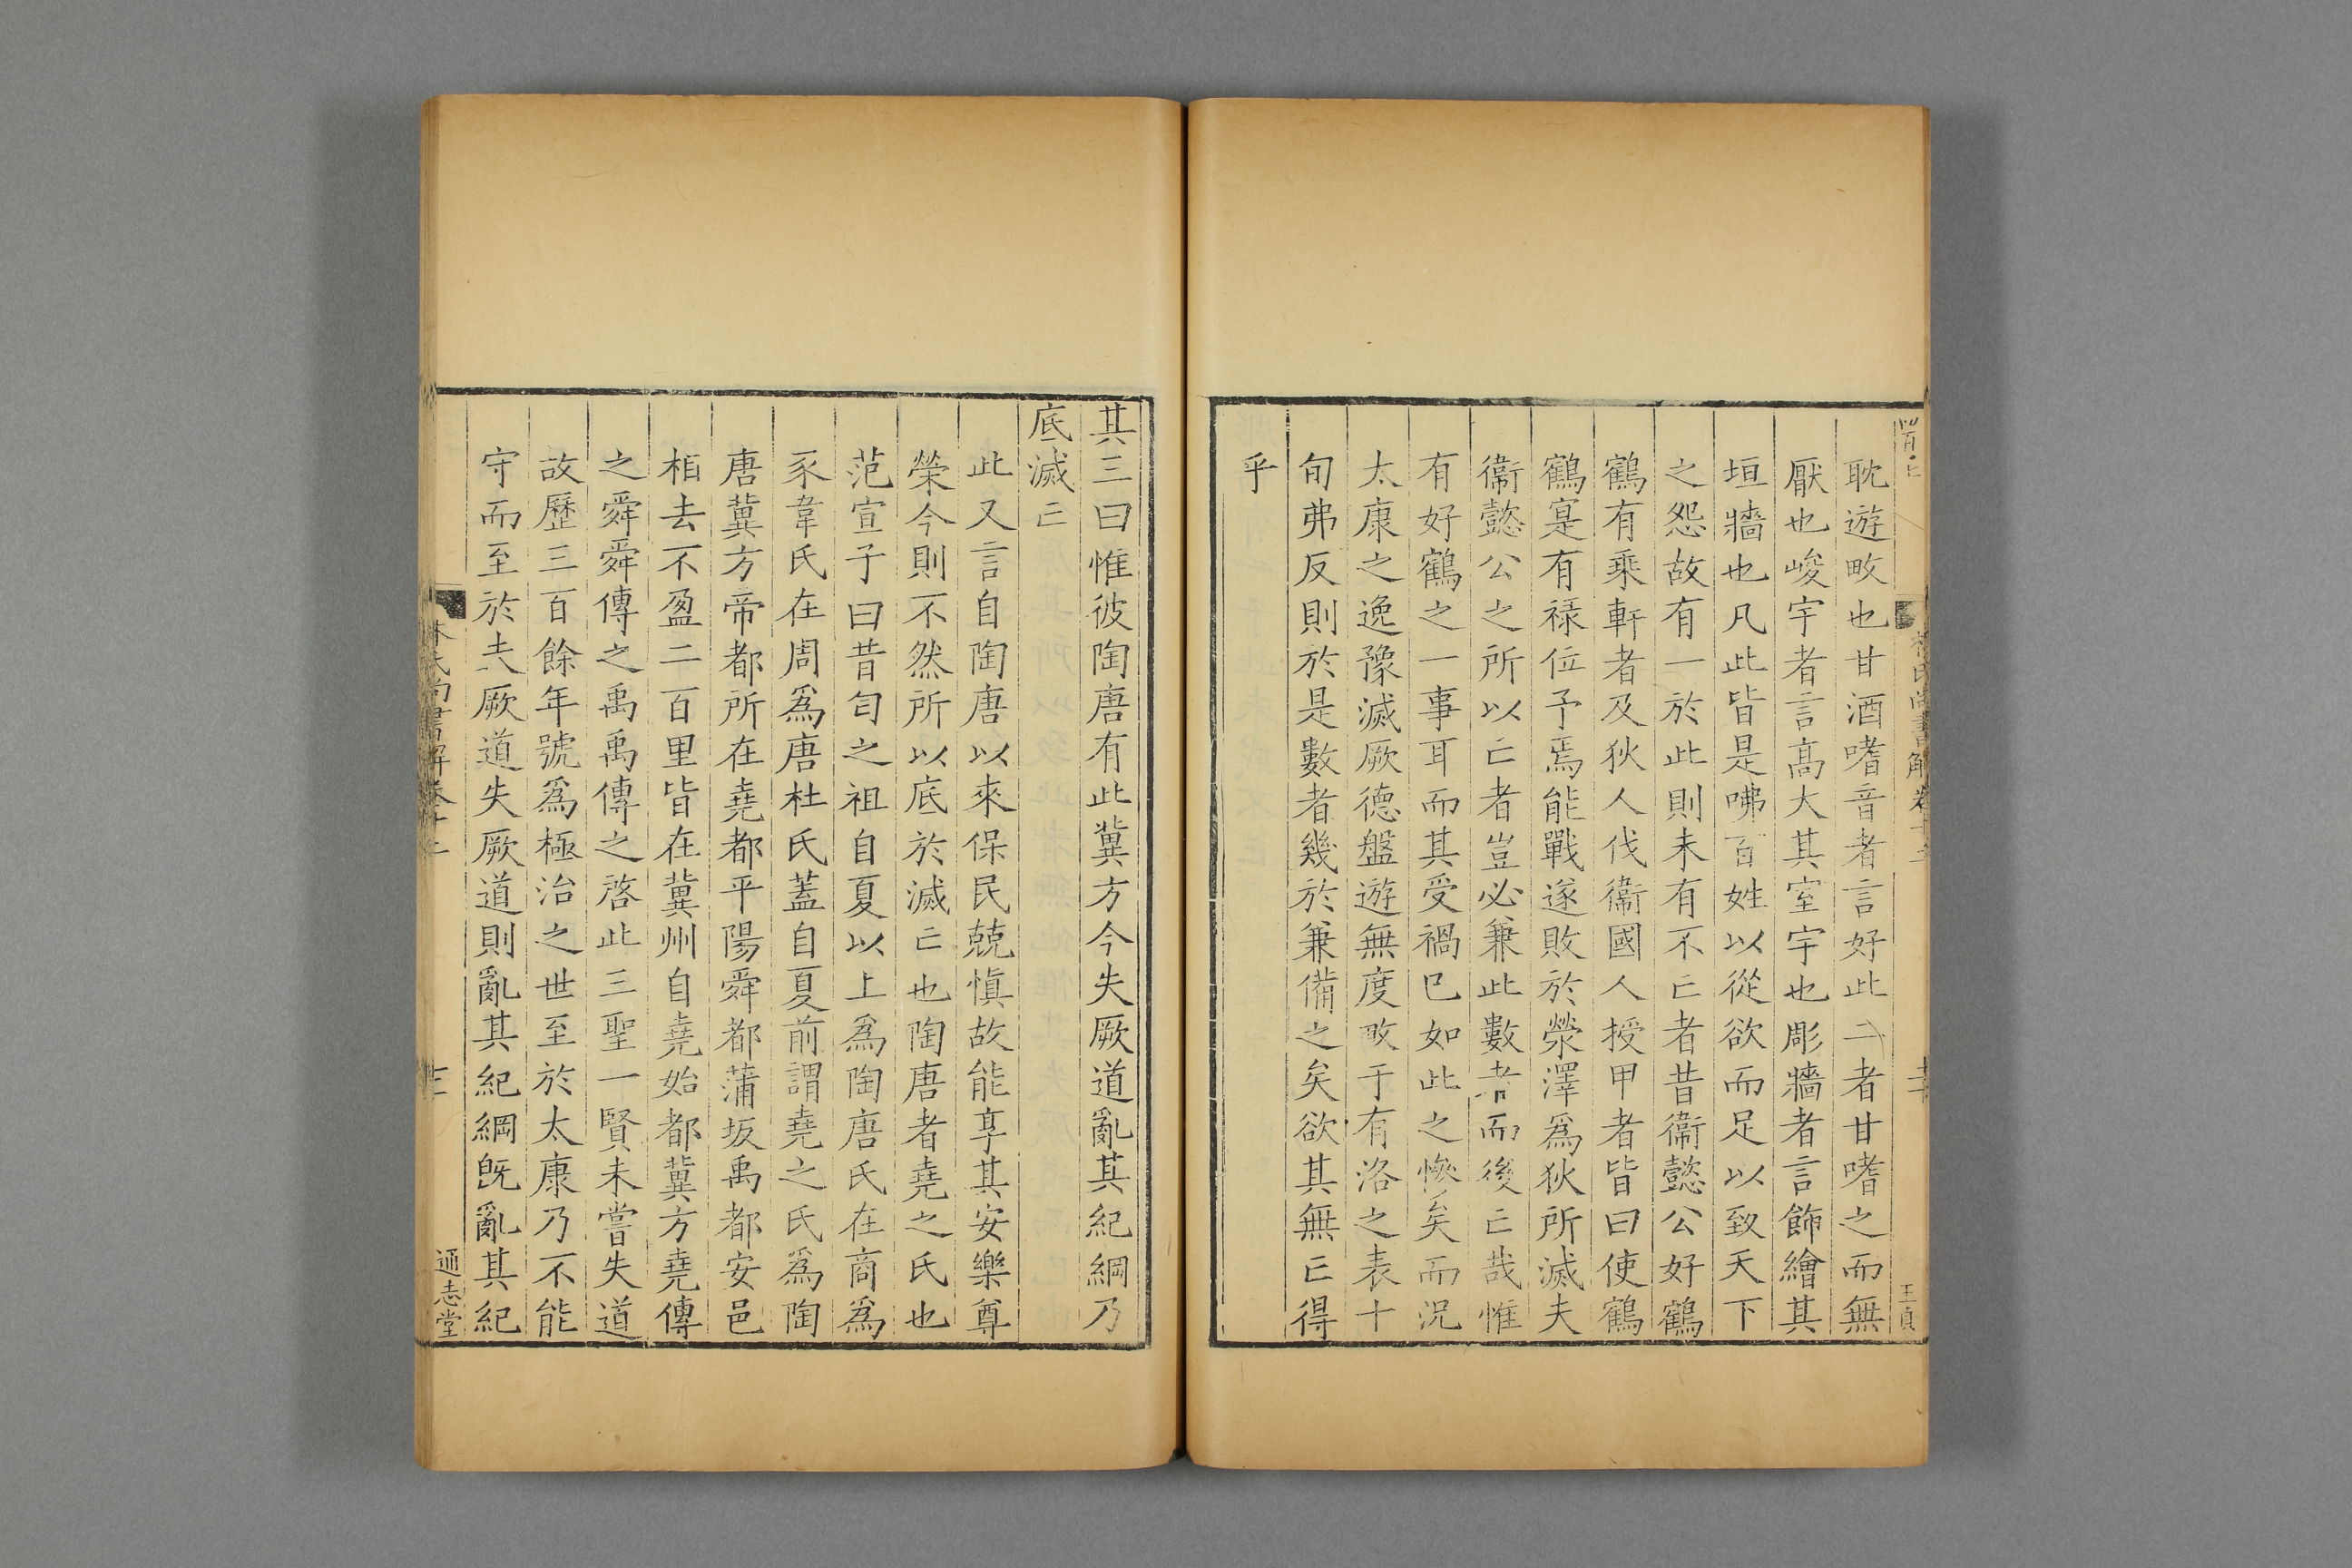 耽遊畋也甘酒嗜音者言好此二者甘嗜之而無
厭也峻宇者言高大其室宇也彫牆者言飾繪其
垣牆也凡此皆是咈百姓以從欲而足以致天下
之怨故有一於此則未有不亡者昔衞懿公好鶴
鶴有乘軒者及狄人伐衞國人授甲者皆曰使鶴
鶴寔有禄位予焉能戰遂敗於滎澤爲狄所滅夫
衞懿公之所以亡者豈必兼此數者而後亡哉惟
有好鶴之一事耳而其受禍已如此之慘矣而況
太康之逸豫滅厥德盤遊無度畋于有洛之表十
旬弗反則於是數者幾於兼備之矣欲其無亡得
乎
王貞
其三曰惟彼陶唐有此冀方今失厥道亂其紀綱乃
底滅亡
此又言自陶唐以來保民兢慎故能享其安樂尊
榮今則不然所以底於滅亡也陶唐者堯之氏也
范宣子曰昔匄之祖自夏以上爲陶唐氏在商爲
豕韋氏在周爲唐杜氏蓋自夏前謂堯之氏爲陶
唐冀方帝都所在堯都平陽舜都蒲坂禹都安邑
相去不盈二百里皆在冀州自堯始都冀方堯傳
之舜舜傳之禹禹傳之啓此三聖一賢未嘗失道
故歷三百餘年號爲極治之世至於太康乃不能
守而至於失厥道失厥道則亂其紀綱旣亂其紀
林氏尚書解卷十二
通志堂